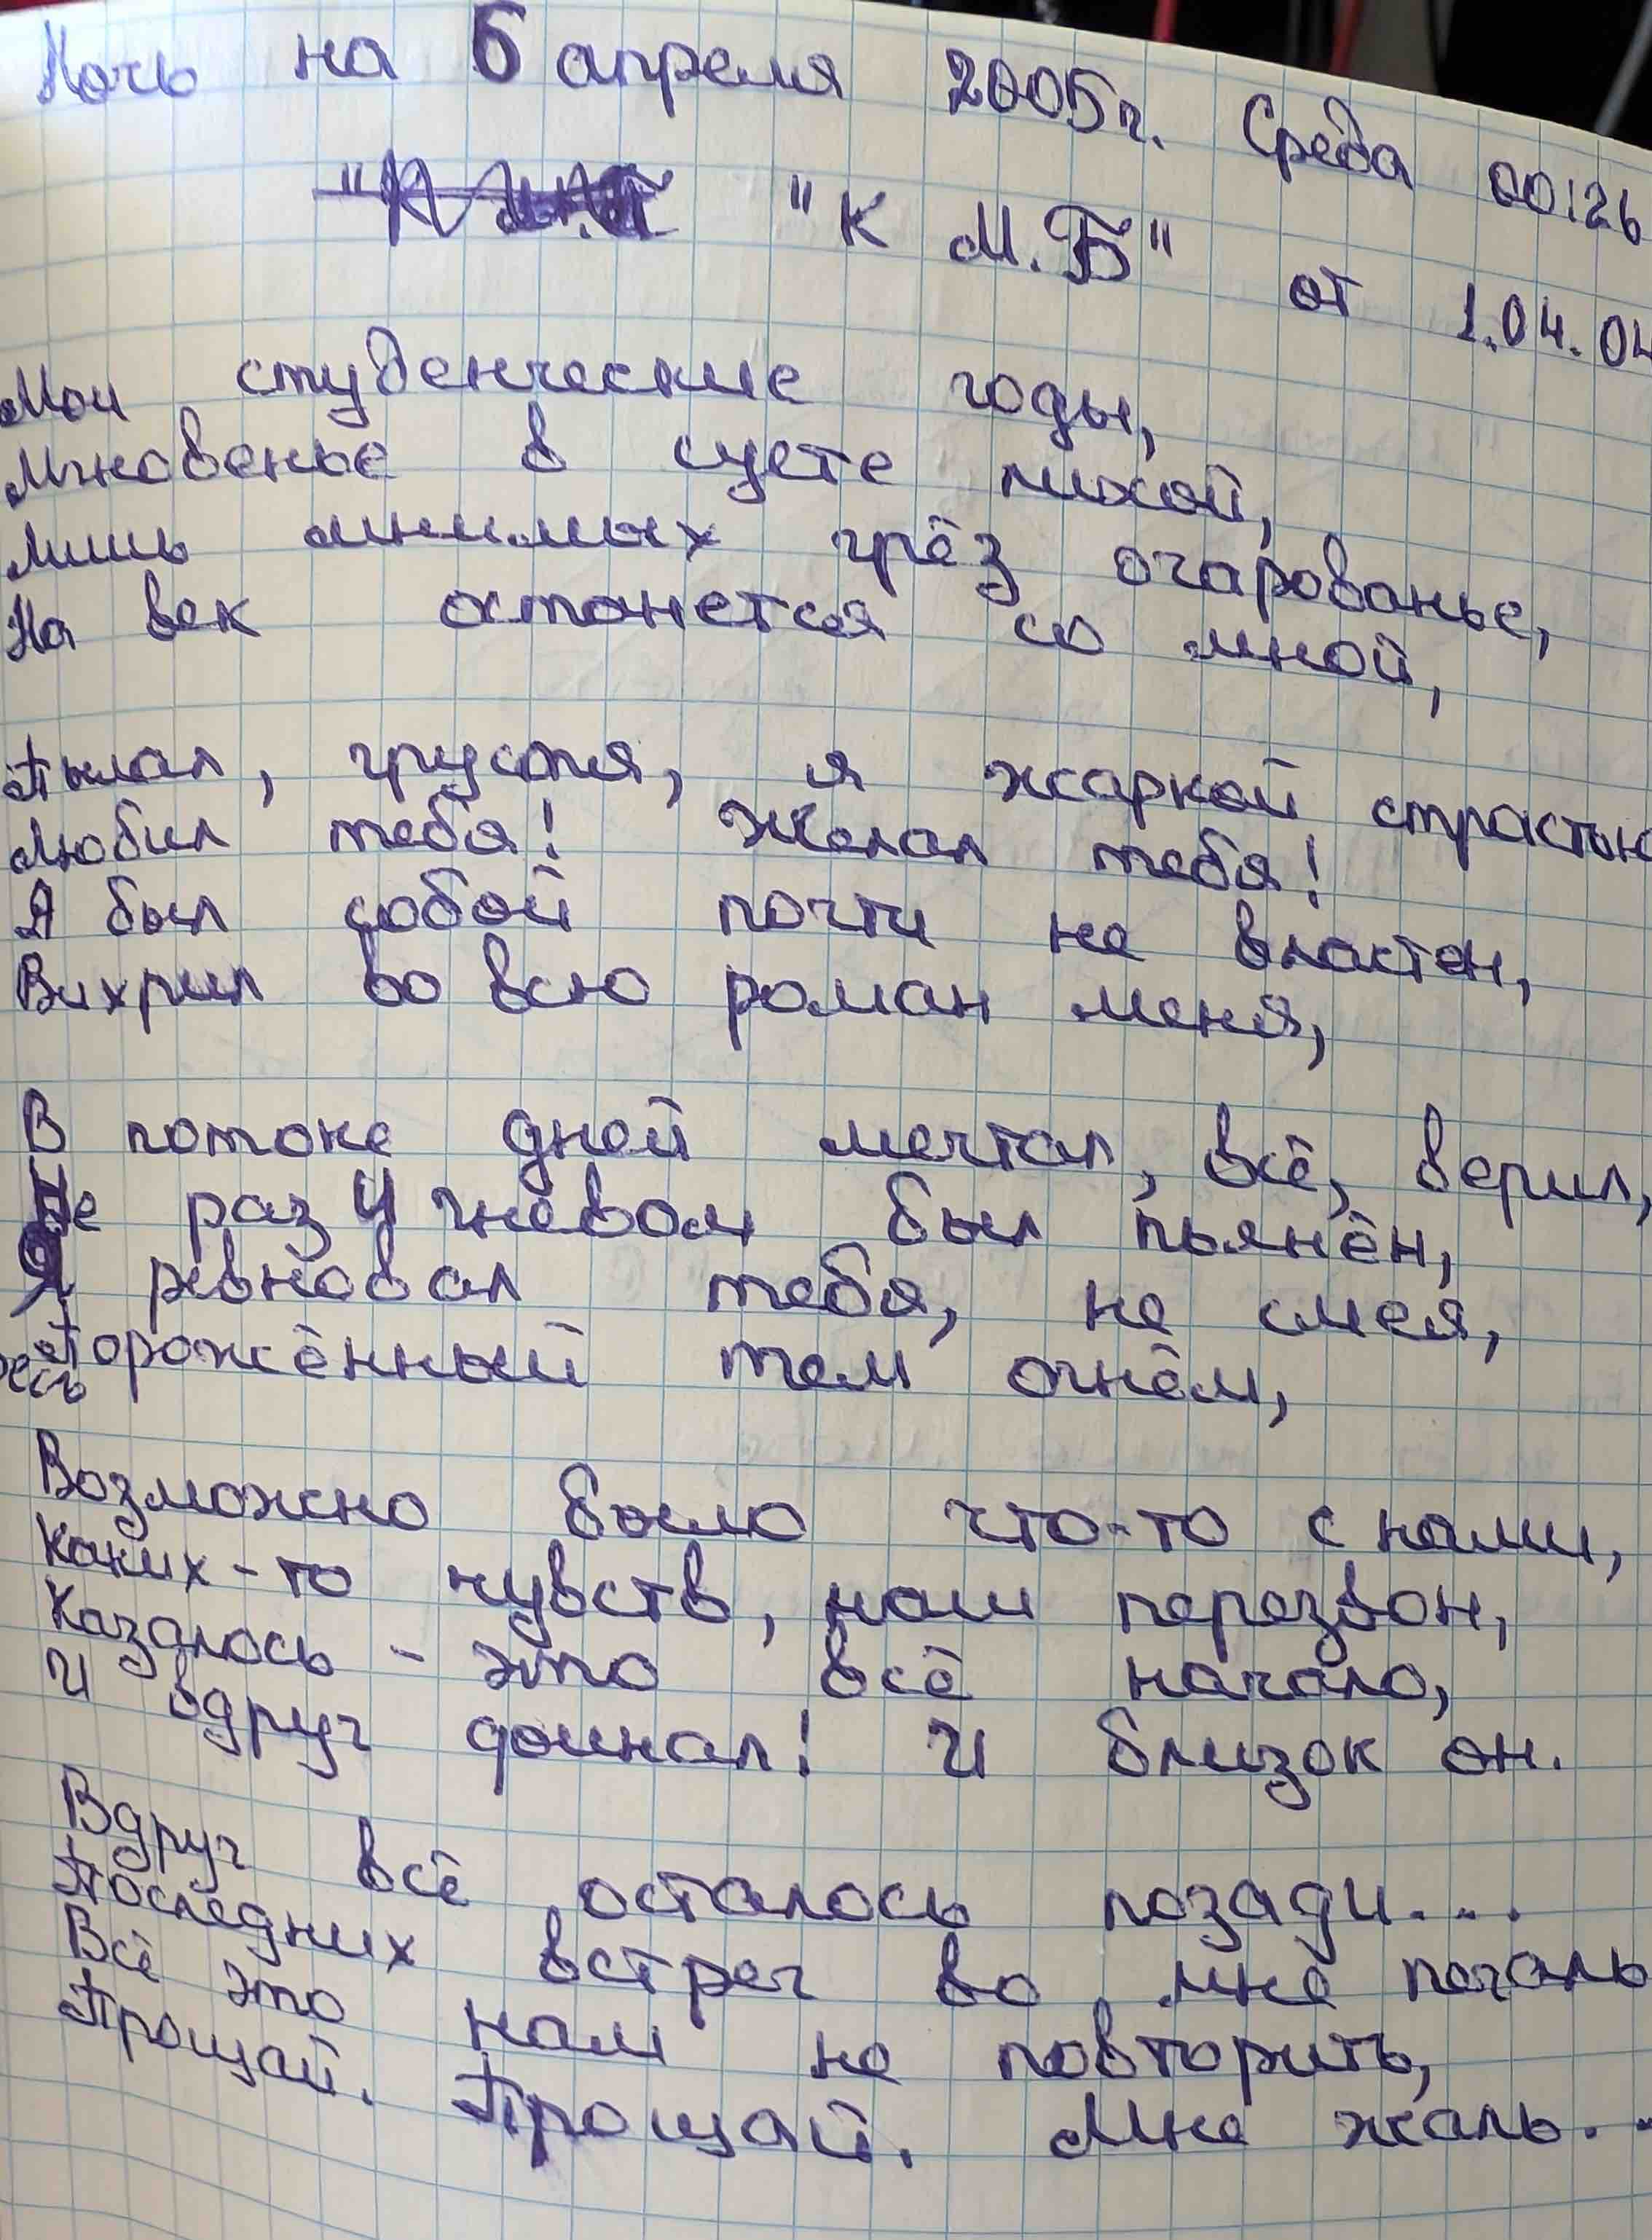 Ночь на 6 апреля 2005г. Среда 00:26
"К М.Б" от 1.04.04
Мои студенческие годы,
Мгновенье в суете лихой,
Лишь мнимых грёз очарованье,
На век останется со мной,
Пылал, грустя, я жаркой страстью
Любил тебя! Желал тебя!
Я был собой почти не властен,
Вихрил во всю роман меня,
В потоке дней мечтал, всё, верил,
Не раз и гневом был пьянён,
Я ревновал тебя, не смея,
Порожённый тем огнём,
весь
Возможно было что-то с нами,
Каких-то чувств, наш перезвон,
Казалось - это всё начало,
И вдруг финал! И близок он.
Вдруг всё осталось позади....
Последних встреч во мне печаль
Всё это нам не повторить,
Прощай. Прощай. Мне жаль...